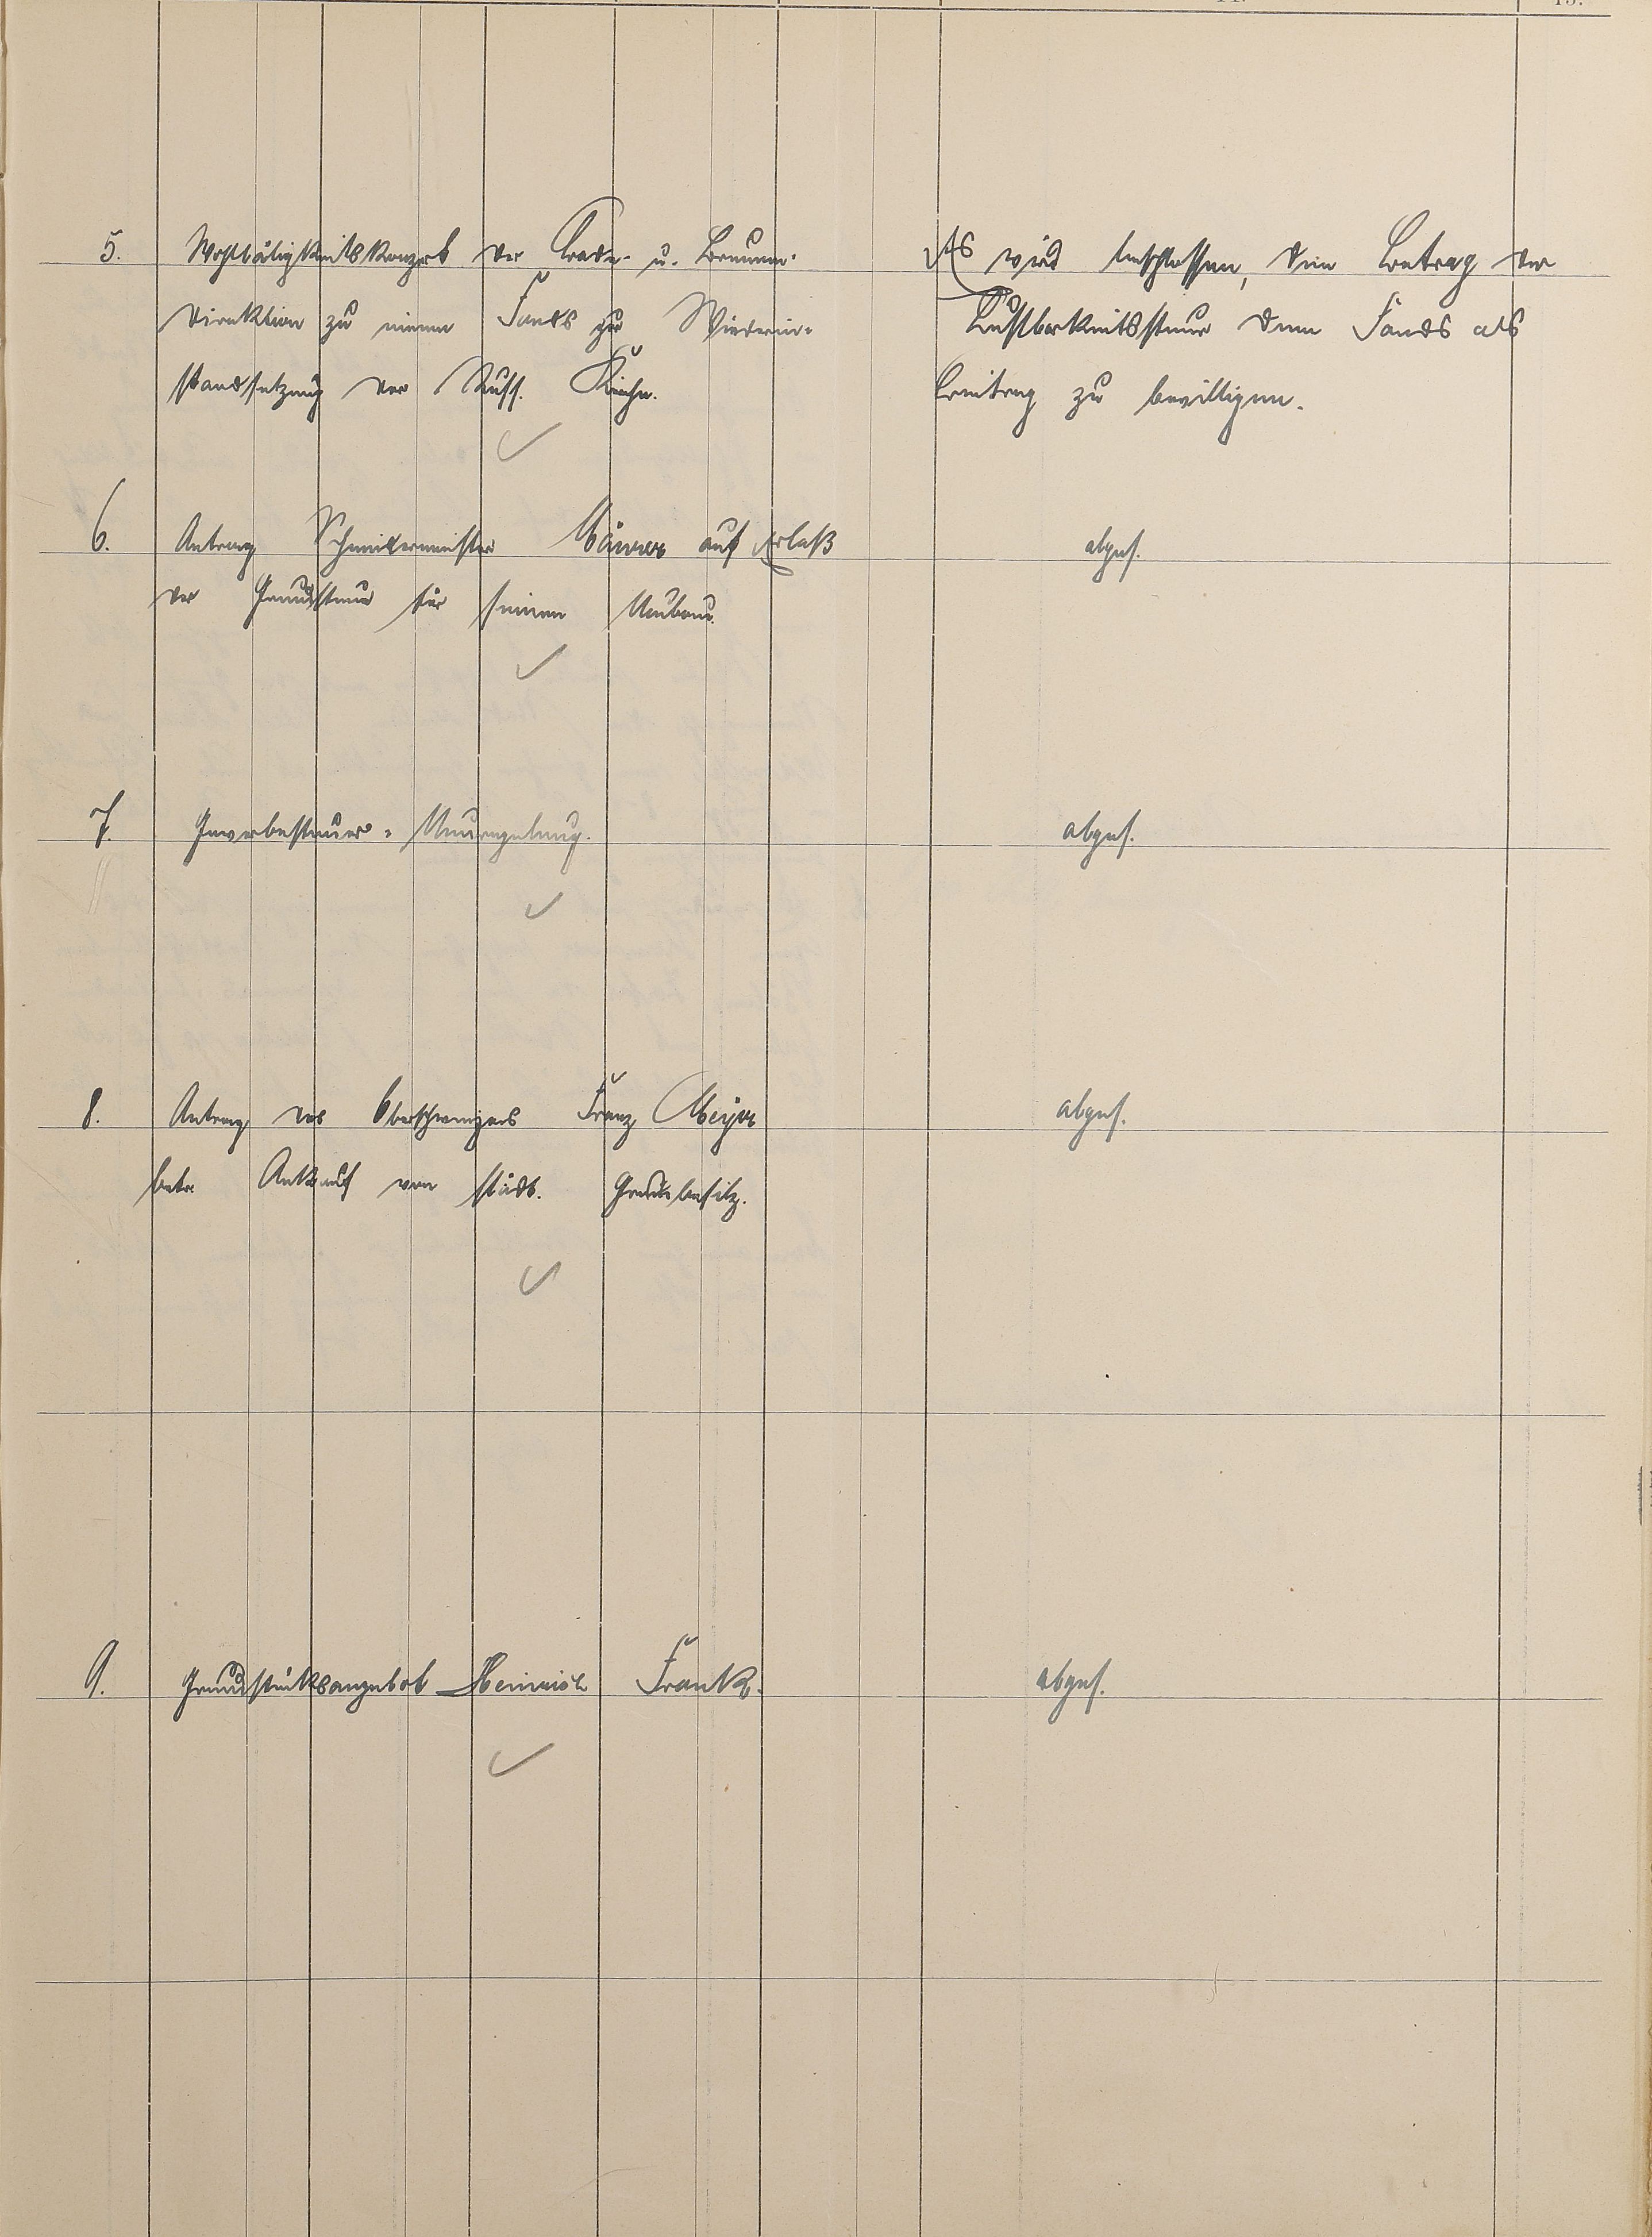 5. Wohltätigkeitskonzert der Bade- u. Brunnen-
direktion zu einem Fonds zur Wiederin-
standsetzung der Russ. Kirche.
Es wird beschlossen, den Betrag der
Lustbarkeitssteuer dem Fonds als
Beitrag zu bewilligen.
6. Antrag Schneidermeister auf Erlaß
der Grundsteuer für seinen Neubau.
abges.
7. Gewerbesteuer-Neuregelung.
abges.
8. Antrag des Oberschweizers Franz Meyer
betr. Ankauf von städt. Grundbesitz.
abges.
9. Grundstücksangebot Heinrich Frank.
abges.